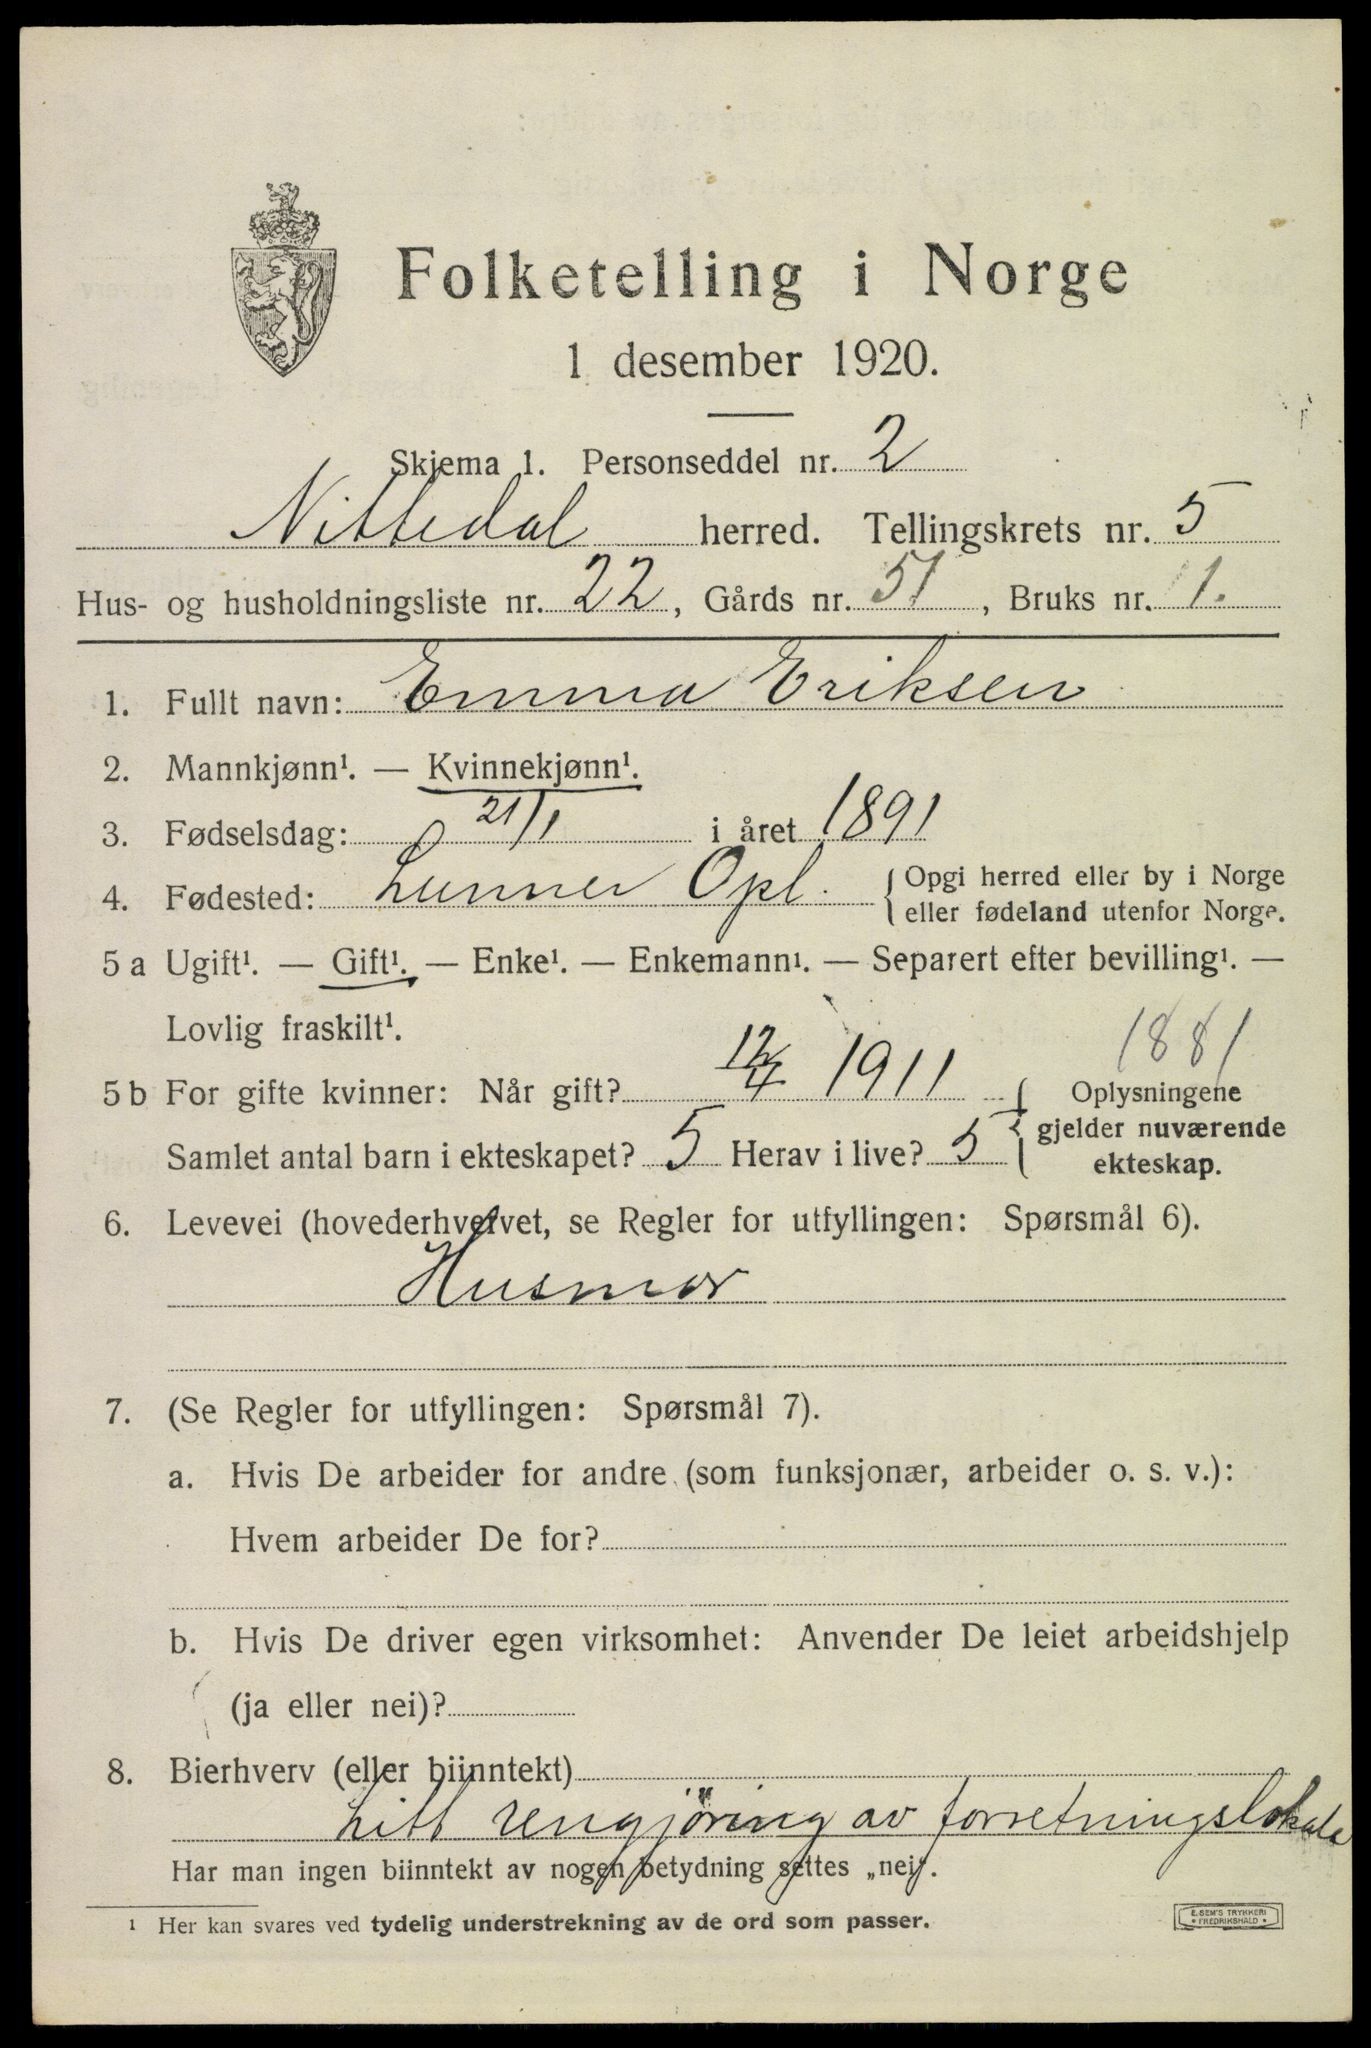 Folketelling i Norge
1 desember 1920.
Skjema 1. Personseddel nr. 2
Nittedal herred. Tellingskrets nr. 5
Hus- og husholdningsliste nr. 22, Gårds nr. 51, Bruks nr. 1.
1. Fullt navn: Emma Eriksen
2. Mannkjønn¹. — Kvinnekjønn¹.
3. Fødselsdag: 21/1 i året 1891
4. Fødested: Lunner Opl. { Opgi herred eller by i Norge
eller fødeland utenfor Norge.
5 a Ugift¹. — Gift¹. — Enke¹. — Enkemann¹. — Separert efter bevilling¹. —
Lovlig fraskilt¹.
1881
5 b For gifte kvinner: Når gift? 12/4 1911 { Oplysningene
gjelder nuværende
Samlet antal barn i ekteskapet? 5 Herav i live? 5 ekteskap.
6. Levevei (hovederhvervet, se Regler for utfyllingen: Spørsmål 6).
Husmor
7. (Se Regler for utfyllingen: Spørsmål 7).
a. Hvis De arbeider for andre (som funksjonær, arbeider o. s. v.):
Hvem arbeider De for?
b. Hvis De driver egen virksomhet: Anvender De leiet arbeidshjelp
(ja eller nei)?
8. Bierhverv (eller biinntekt)
Litt rengjöring av forretningslokale
Har man ingen biinntekt av nogen betydning settes „nei“.
¹ Her kan svares ved tydelig understrekning av de ord som passer.
E. SEM'S TRYKKERI
FREDRIKSHALD